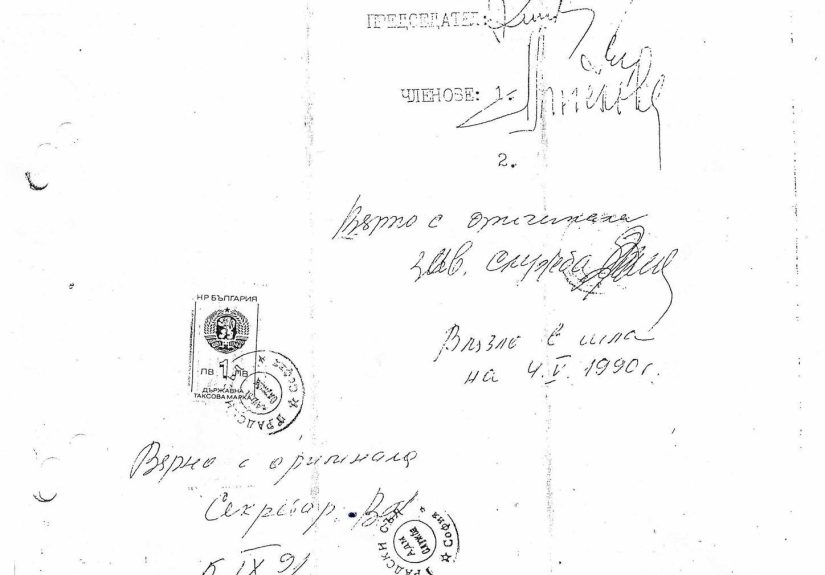 ПРЕДСЕДАТЕЛ:
ЧЛЕНОВЕ: 1.
2.
Вярно с оригинала
зав. служба
Влязло в сила
на 4.V.1990г.
НР БЪЛГАРИЯ
ЛВ 1 ЛВ
ДЪРЖАВНА
ТАКСОВА МАРКА
ГРАДСКИ
София
Вярно с оригинала
Секретар:
ГРАДСКИ СЪД
София
5 IX 91